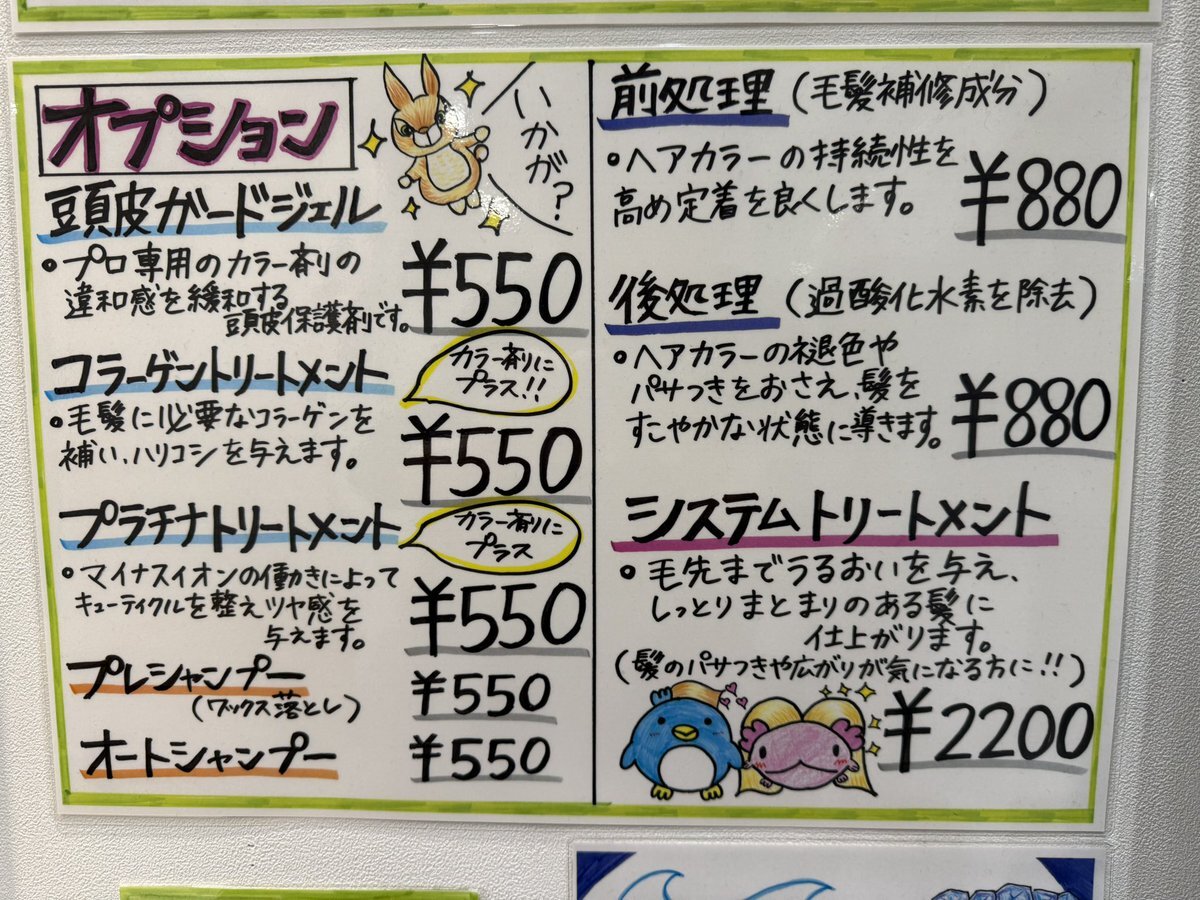 オプション
いかが?
頭皮ガードジェル
・プロ専用のカラー剤の
違和感を緩和する
頭皮保護剤です。
¥550
コラーゲントリートメント
カラー剤に
プラス!!
・毛髪に必要なコラーゲンを
補い、ハリコシを与えます。
¥550
プラチナトリートメント
カラー剤に
プラス
・マイナスイオンの働きによって
キューティクルを整えツヤ感を
与えます。
¥550
プレシャンプー
(ワックス落とし)
¥550
オートシャンプー
¥550
前処理(毛髪補修成分)
・ヘアカラーの持続性を
高め定着を良くします。
¥880
後処理(過酸化水素を除去)
・ヘアカラーの褪色や
パサつきをおさえ、髪を
すこやかな状態に導きます。
¥880
システムトリートメント
・毛先までうるおいを与え、
しっとりまとまりのある髪に
仕上がります。
(髪のパサつきや広がりが気になる方に!!)
¥2200